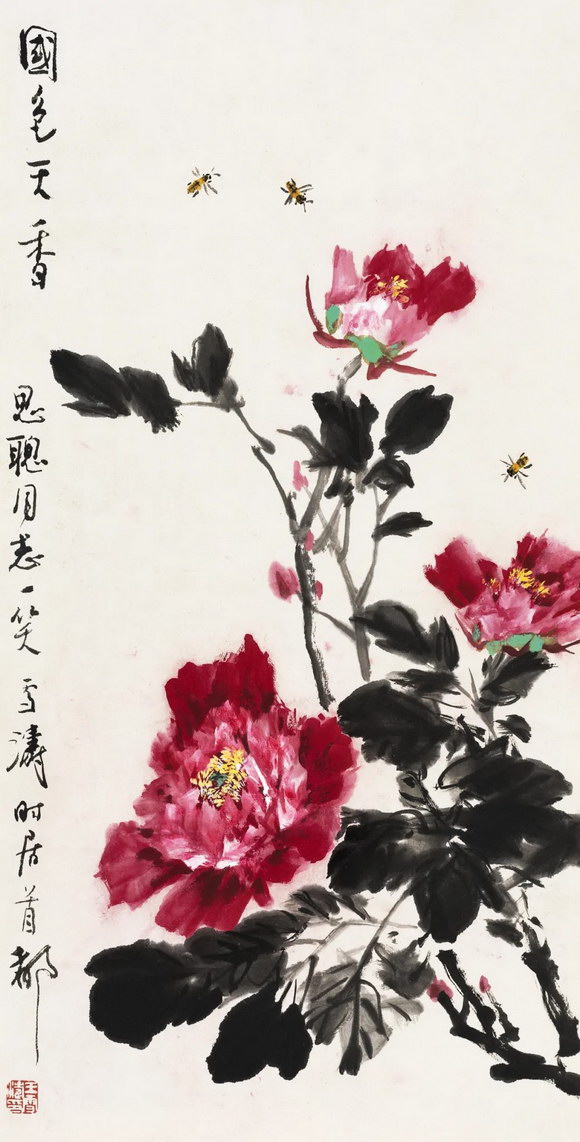 國色天香
思聰同志一笑雪濤时居首都
王雪濤印